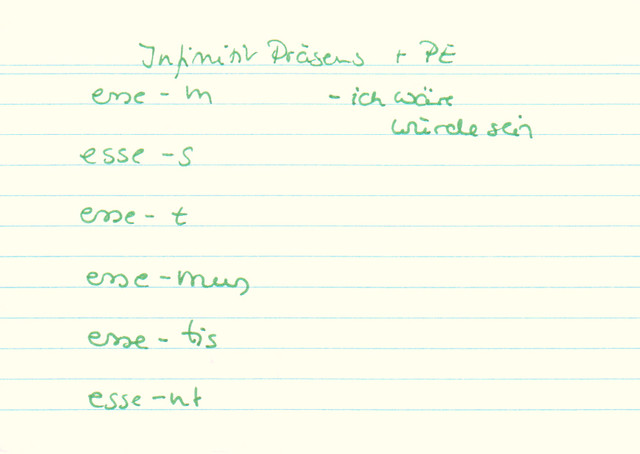 Infinitiv Präsens + PE
esse - m - ich wäre
würde sein
esse - s
esse - t
esse - mus
esse - tis
esse - nt